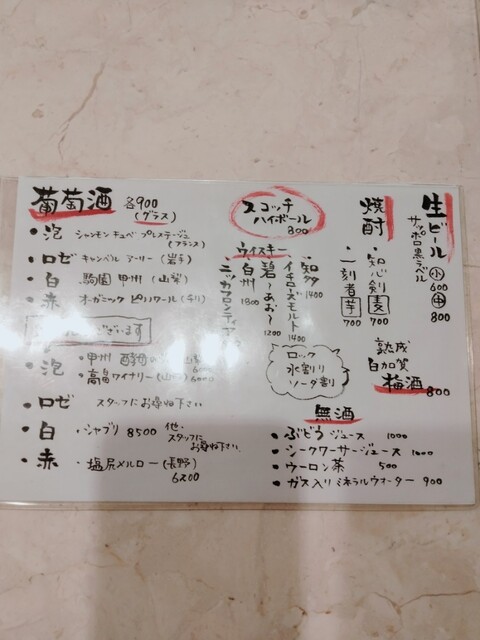 葡萄酒 各900
(グラス)
・泡 シャンモン キュベ プレステージュ
(フランス)
・ロゼ キャンベル アーリー (岩手)
・白 駒園 甲州 (山梨)
・赤 オーガニック ピノノワール (チリ)
ございます
・泡 ・甲州 酵母の
・高畠ワイナリー (山
・ロゼ スタッフにお尋ね下さい
・白 ・シャブリ 8500 他、
スタッフに
お尋ね下さい。
・赤 ・塩尻メルロー (長野)
6500
スコッチ
ハイボール
800
ウイスキー
・知多
1400
イチローズモルト
1400
碧〜あお〜
1200
白州
1800
ニッカフロンティア
ロック
水割り
ソーダ割
焼酎
・知心剣 麦
700
・一刻者 芋
700
生ビール
サッポロ黒ラベル
小 600
中 800
熟成
白加賀
梅酒 800
無酒
・ぶどうジュース 1000
・シークワーサージュース 1000
・ウーロン茶 500
・ガス入りミネラルウォーター 900